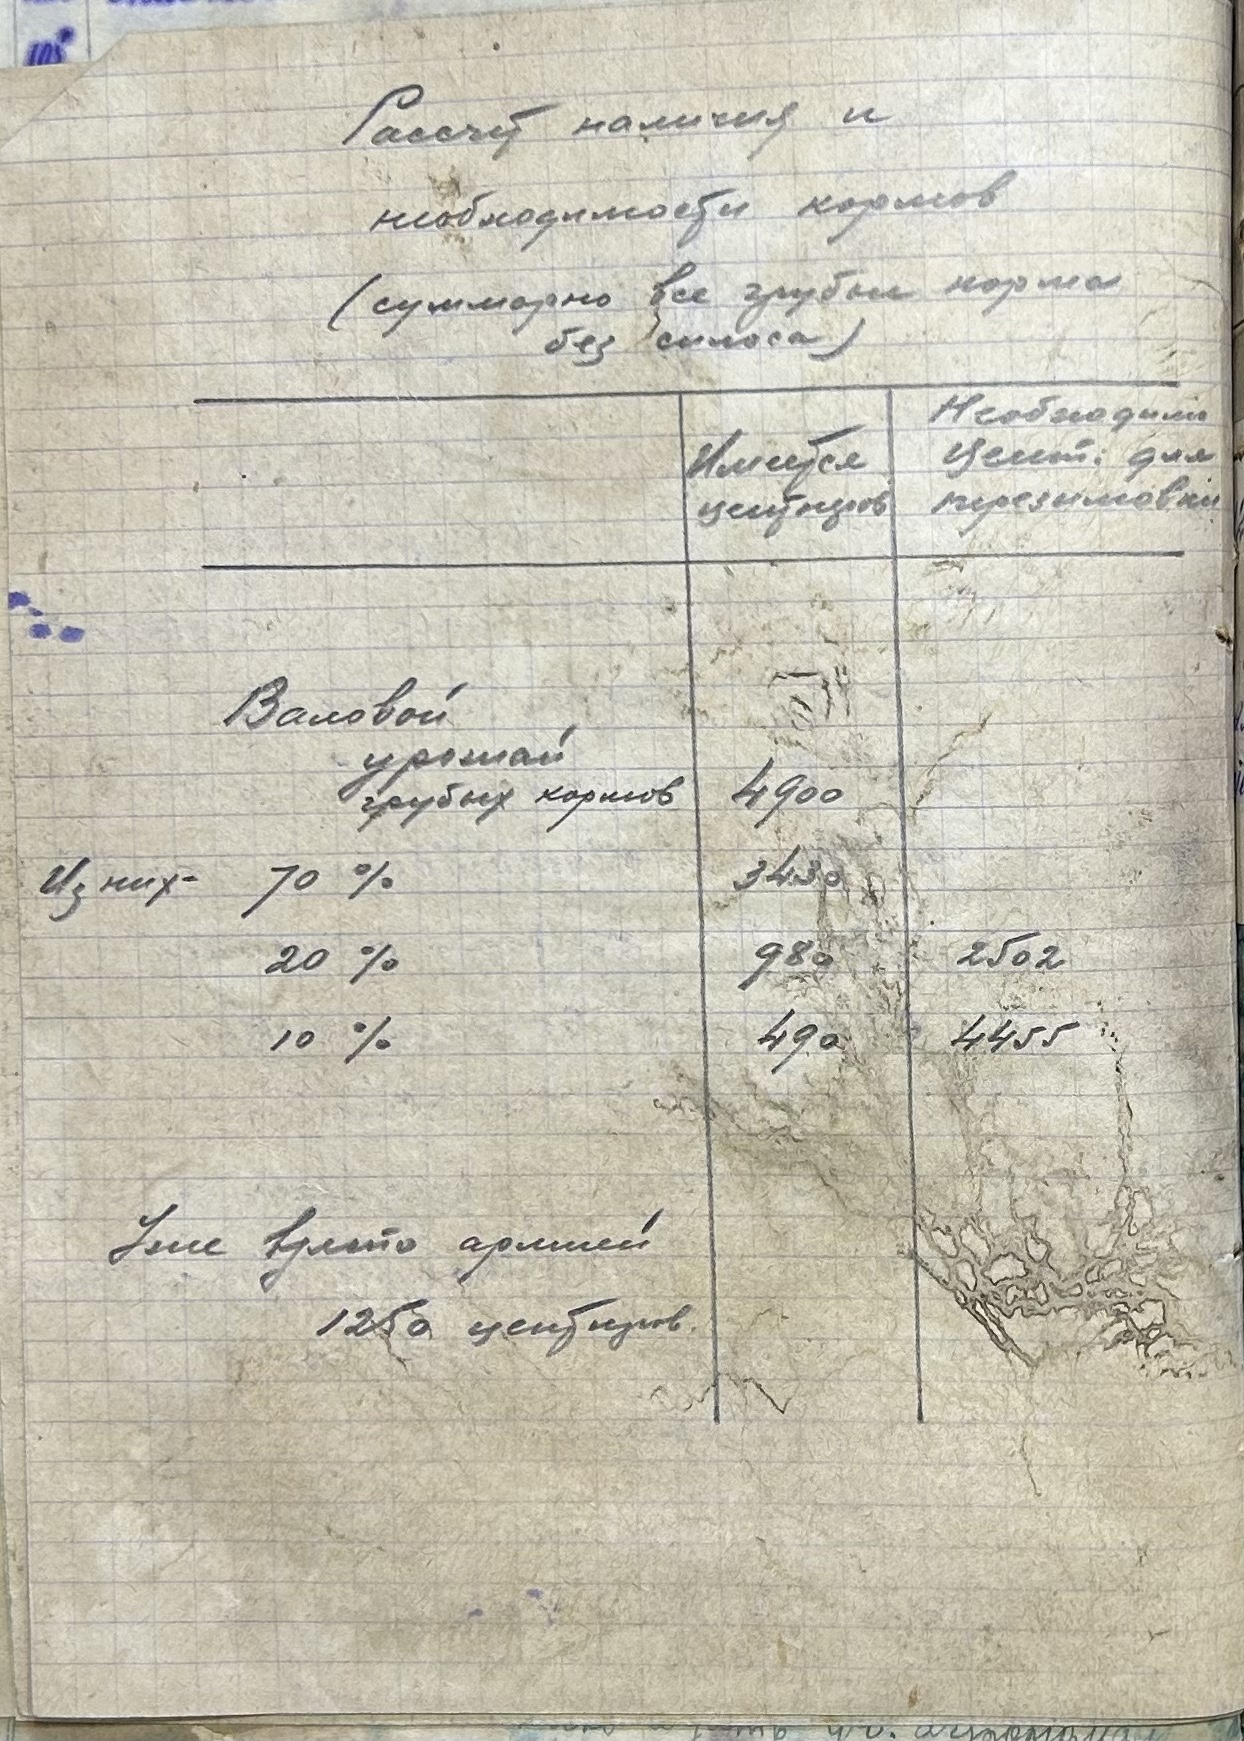 Рассчет наличия и
необходимости кормов
(суммарно все грубые корма
без силоса)
Имеется
центнеров
Необходимо
цент. для
перезимовки
Валовой
урожай
грубых кормов 4900
Из них- 70 % 3430
20 % 980 2502
10 % 490 4455
Уже взято армией
1250 центнеров.